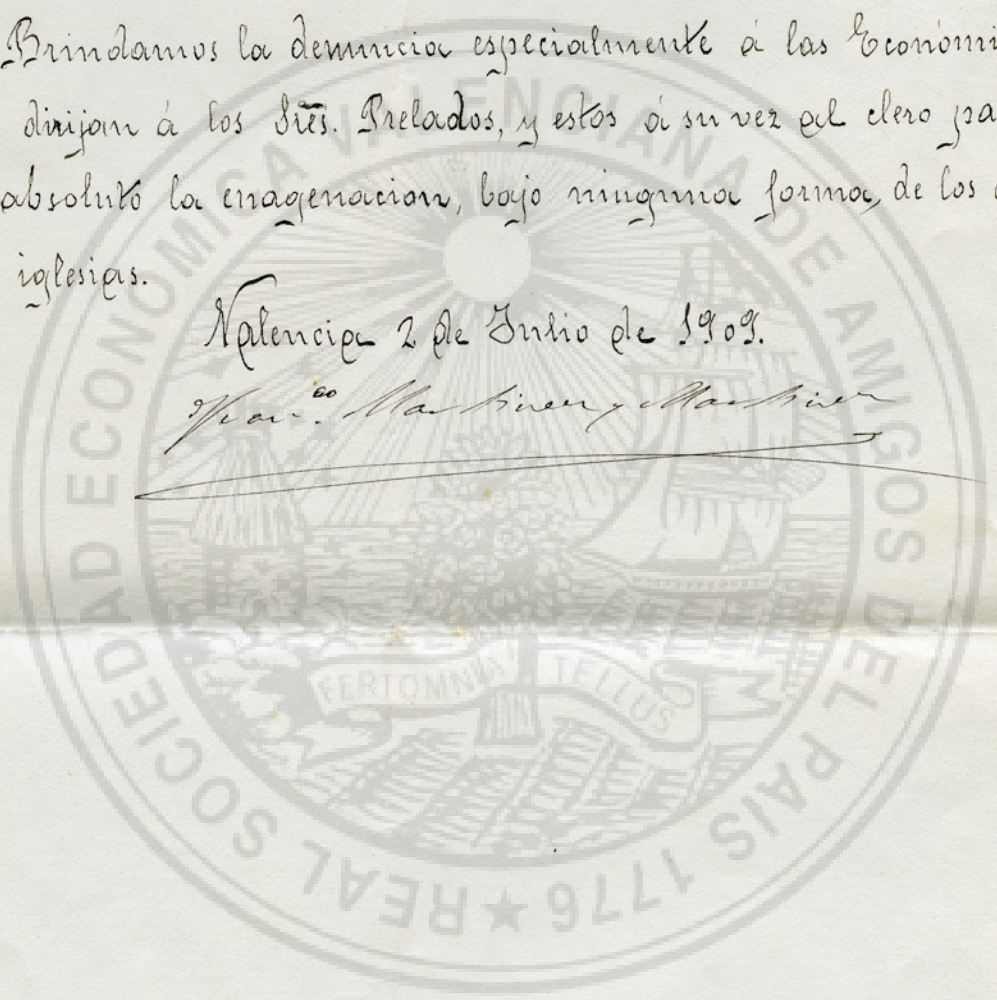 Brindamos la denuncia especialmente á las Económi
dirijan á los Srēs. Prelados, y estos á su vez al clero pa
absoluto la enagenacion, bajo ninguna forma, de los
iglesias.
Valencia 2 de Julio de 1909.
Franco. Martinez y Martinez
REAL SOCIEDAD ECONOMICA VALENCIANA DE AMIGOS DEL PAIS 1776
FERT OMNIA TELLUS